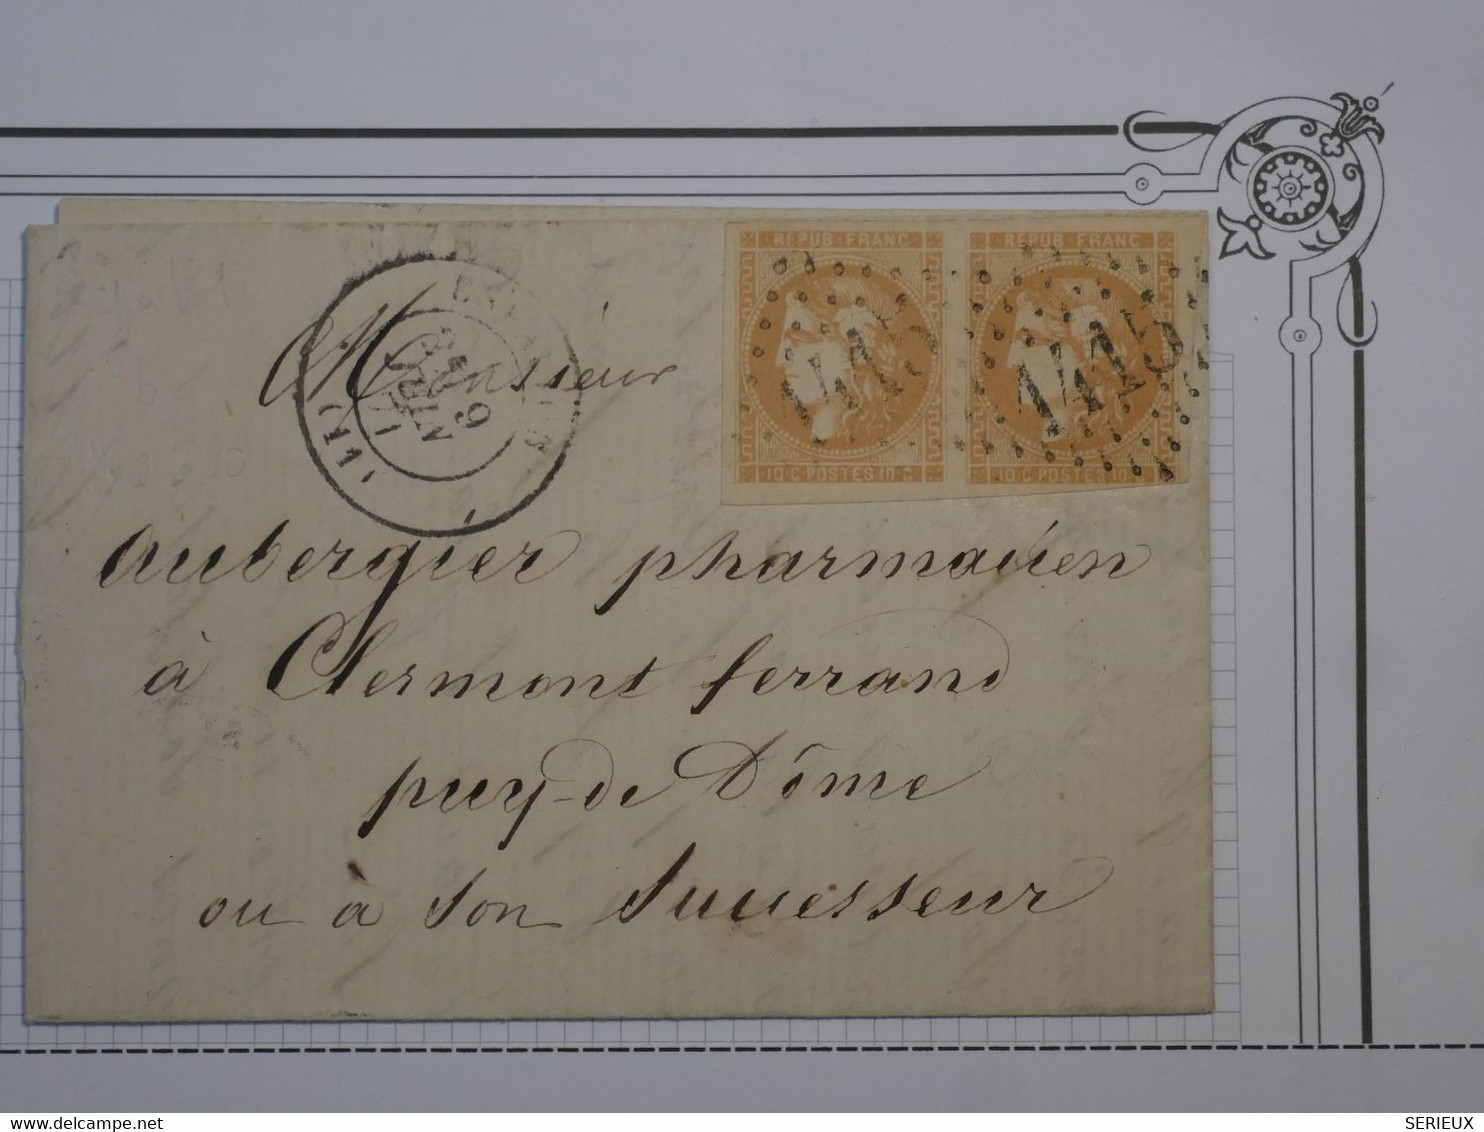 REPUB·FRANC
REPUB·FRANC
10·C·POSTES·10·C
10·C·POSTES·10
1415
Monsieur
Aubergier pharmacien
à Clermont ferrand
puy-de Dôme
ou à son Successeur
© delcampe.net
SERIEUX